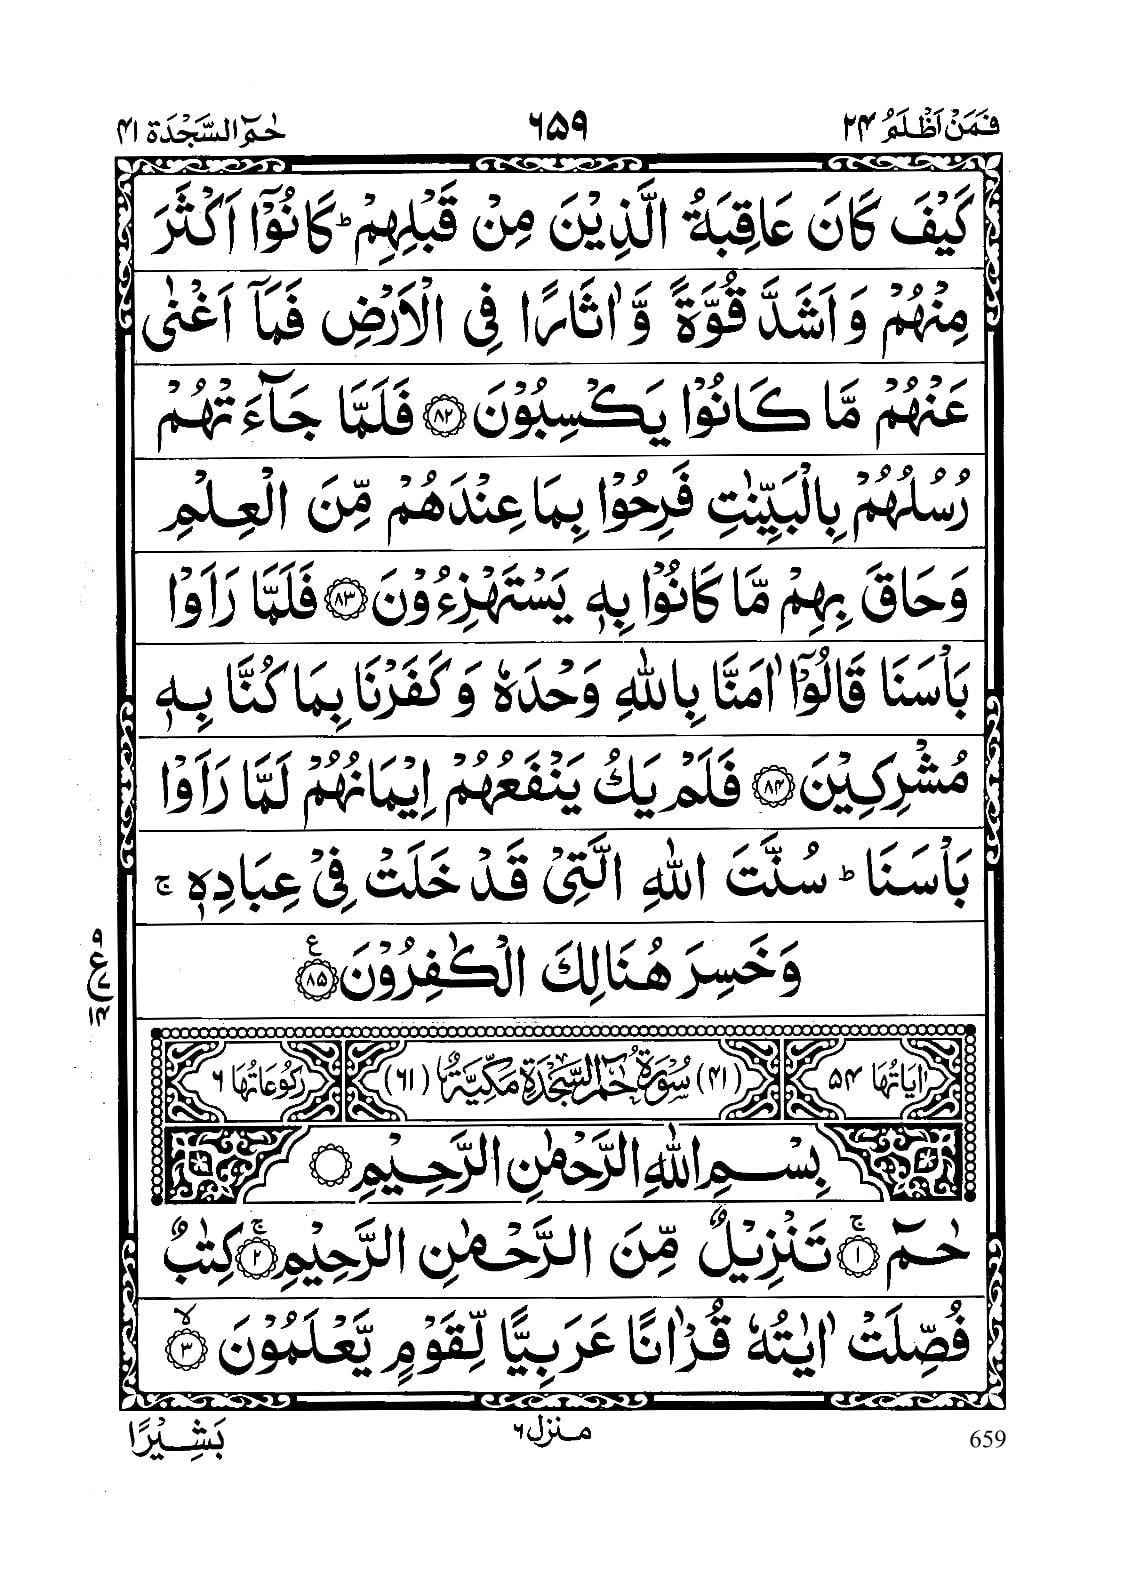 فَمَنْ اَظْلَمُ ٢٤ ٦٥٩ حٰمٓ السَّجْدَة ٤١
كَيْفَ كَانَ عَاقِبَةُ الَّذِيْنَ مِنْ قَبْلِهِمْ ؕ كَانُوْۤا اَكْثَرَ
مِنْهُمْ وَ اَشَدَّ قُوَّةً وَّ اٰثَارًا فِي الْاَرْضِ فَمَاۤ اَغْنٰى
عَنْهُمْ مَّا كَانُوْا يَكْسِبُوْنَ ۝٨٢ فَلَمَّا جَآءَتْهُمْ
رُسُلُهُمْ بِالْبَيِّنٰتِ فَرِحُوْا بِمَا عِنْدَهُمْ مِّنَ الْعِلْمِ
وَحَاقَ بِهِمْ مَّا كَانُوْا بِهٖ يَسْتَهْزِءُوْنَ ۝٨٣ فَلَمَّا رَاَوْا
بَاْسَنَا قَالُوْۤا اٰمَنَّا بِاللّٰهِ وَحْدَهٗ وَ كَفَرْنَا بِمَا كُنَّا بِهٖ
مُشْرِكِيْنَ ۝٨٤ فَلَمْ يَكُ يَنْفَعُهُمْ اِيْمَانُهُمْ لَمَّا رَاَوْا
بَاْسَنَا ؕ سُنَّتَ اللّٰهِ الَّتِيْ قَدْ خَلَتْ فِيْ عِبَادِهٖ ۚ
وَخَسِرَ هُنَالِكَ الْكٰفِرُوْنَ ۝٨٥ ع
٩
ع
٧
١٤
اٰيَاتُهَا ٥٤ (٤١) سُوْرَةُ حٰمٓ السَّجْدَةِ مَكِّيَّةٌ (٦١) رُكُوْعَاتُهَا ٦
بِسْمِ اللّٰهِ الرَّحْمٰنِ الرَّحِيْمِ ۝
حٰمٓ ۝١ ۚ تَنْزِيْلٌ مِّنَ الرَّحْمٰنِ الرَّحِيْمِ ۝٢ ۚ كِتٰبٌ
فُصِّلَتْ اٰيٰتُهٗ قُرْاٰنًا عَرَبِيًّا لِّقَوْمٍ يَّعْلَمُوْنَ ۝٣ ۙ
659 منزل ٦ بَشِيْرًا